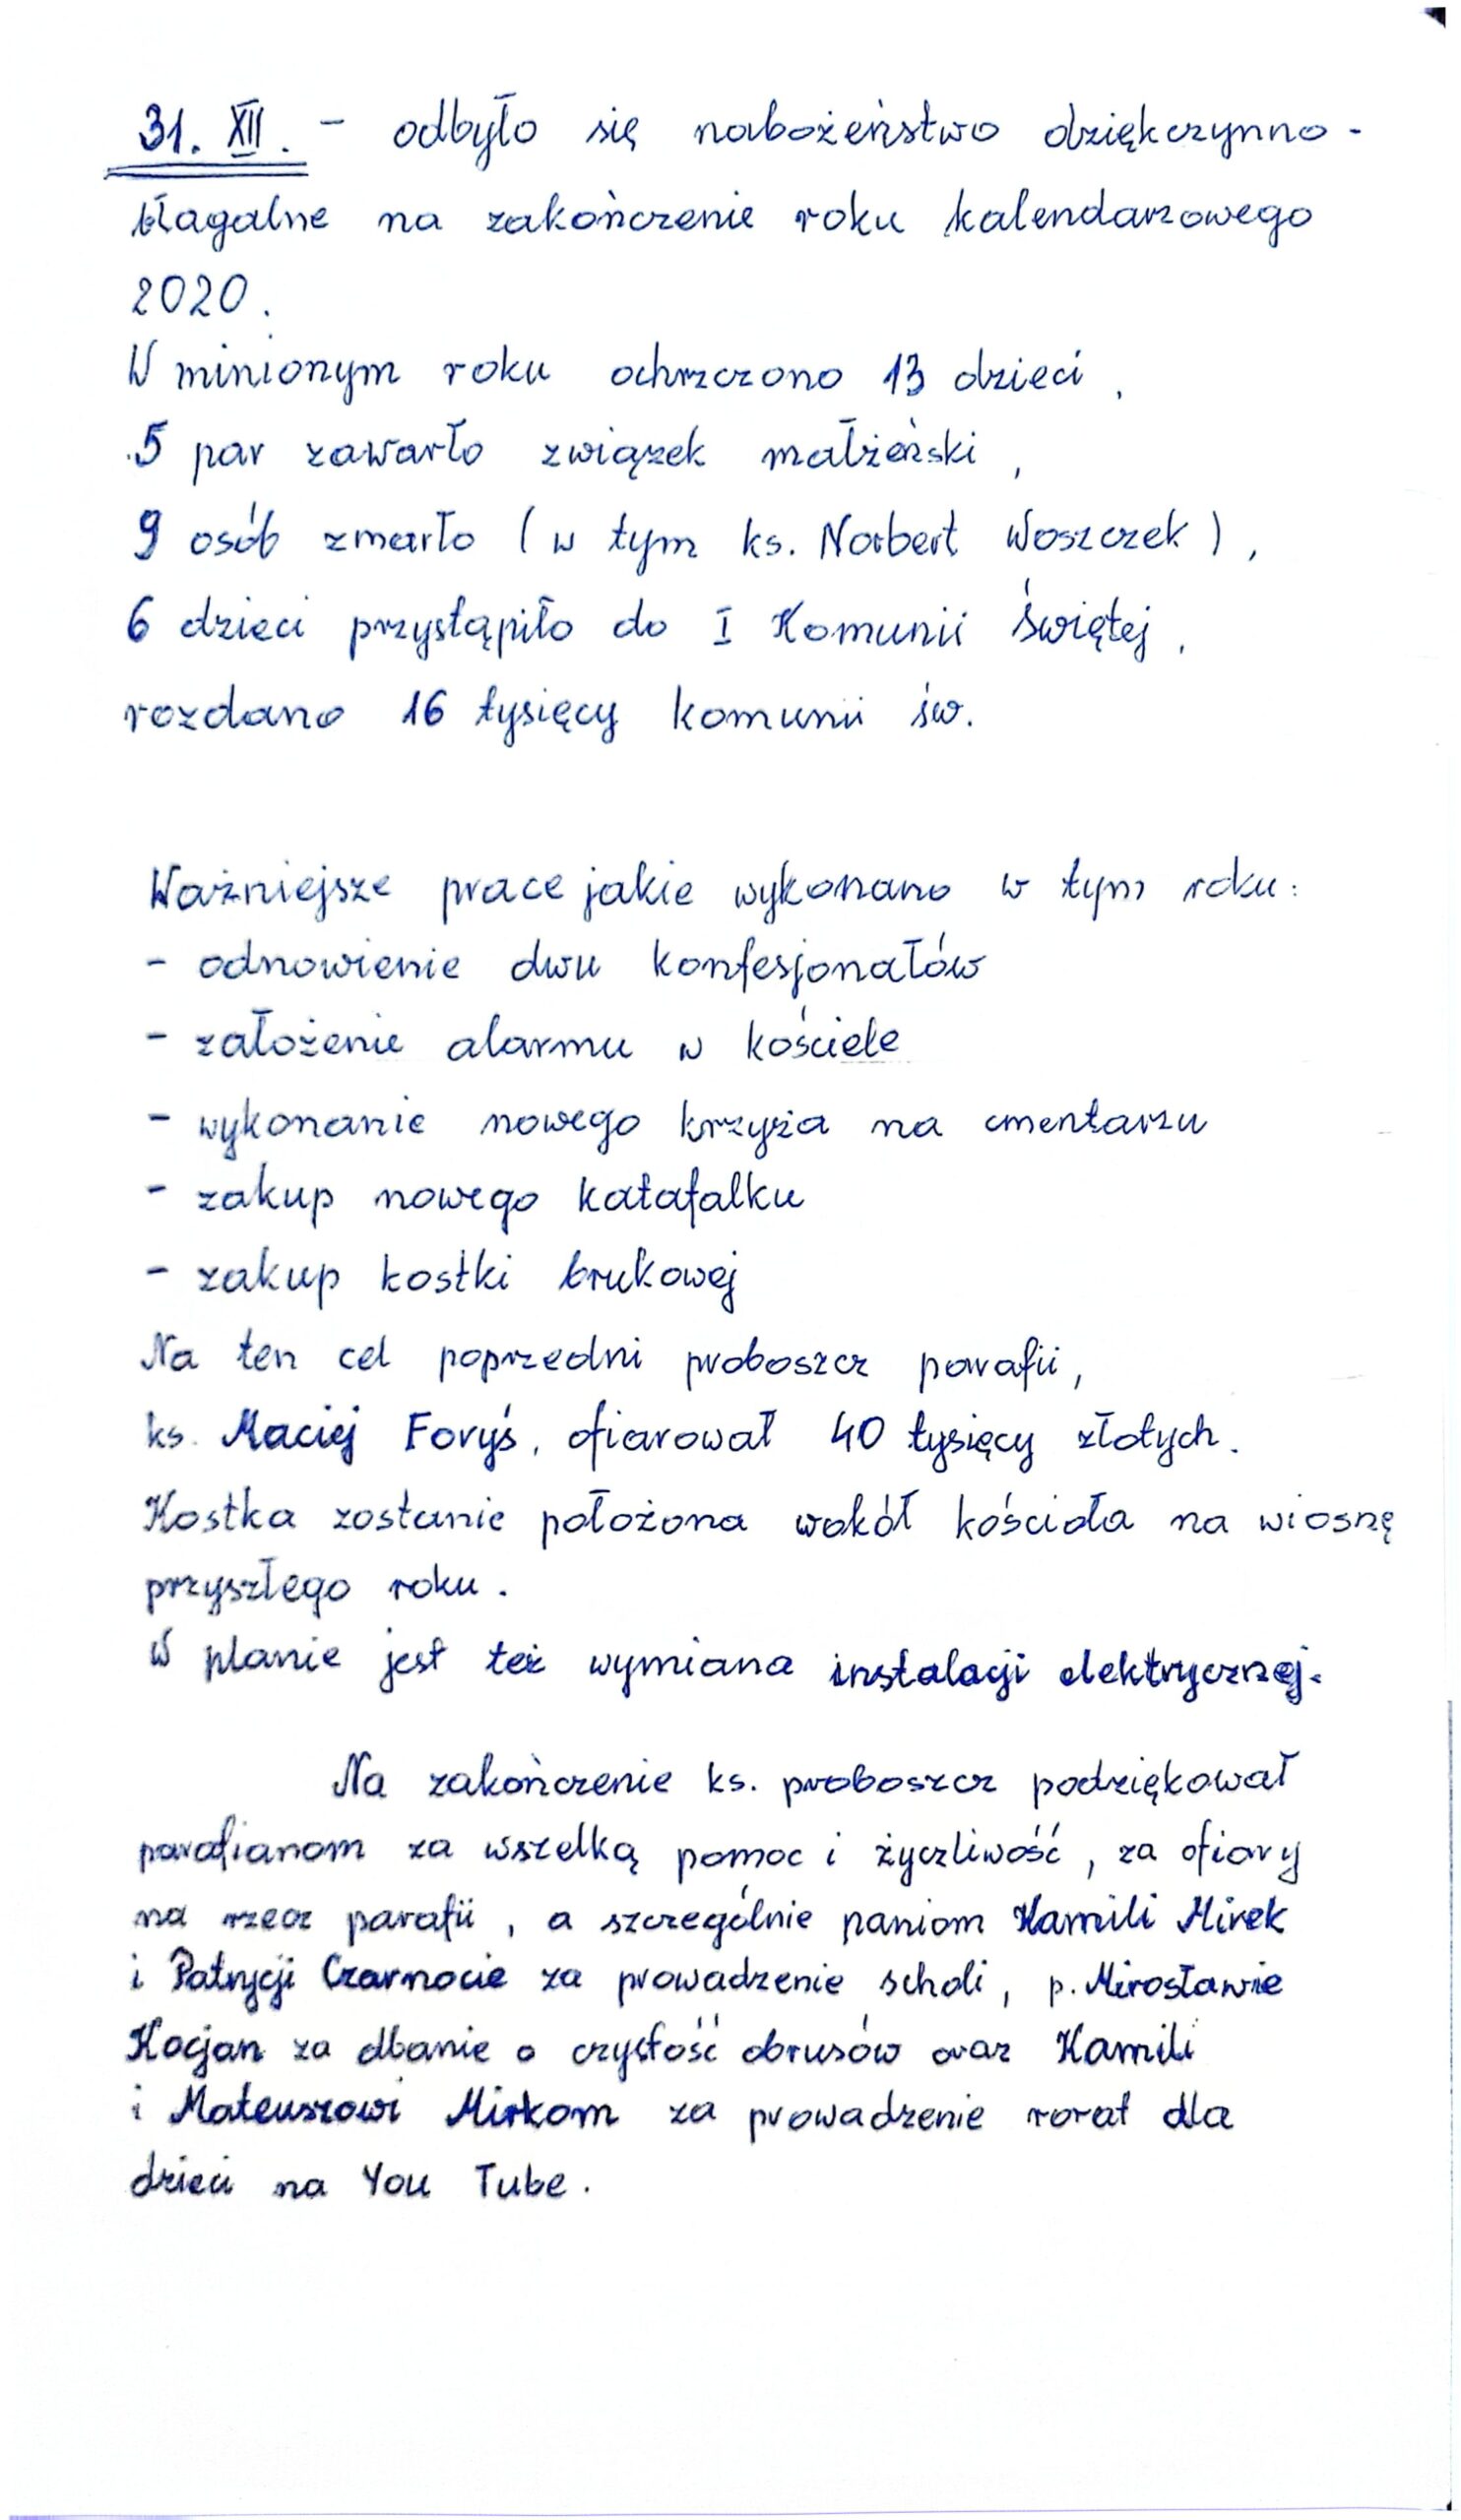 31. XII. - odbyło się nabożeństwo dziękczynno-
błagalne na zakończenie roku kalendarzowego
2020.
W minionym roku ochrzczono 13 dzieci,
5 par zawarło związek małżeński,
9 osób zmarło (w tym ks. Norbert Woszczek),
6 dzieci przystąpiło do I Komunii Świętej,
rozdano 16 tysięcy komunii św.
Ważniejsze prace jakie wykonano w tym roku:
- odnowienie dwu konfesjonałów
- założenie alarmu w kościele
- wykonanie nowego krzyża na cmentarzu
- zakup nowego katafalku
- zakup kostki brukowej
Na ten cel poprzedni proboszcz parafii,
ks. Maciej Foryś, ofiarował 40 tysięcy złotych.
Kostka zostanie położona wokół kościoła na wiosnę
przyszłego roku.
W planie jest też wymiana instalacji elektrycznej.
Na zakończenie ks. proboszcz podziękował
parafianom za wszelką pomoc i życzliwość, za ofiary
na rzecz parafii, a szczególnie paniom Kamili Mirek
i Patrycji Czarnocie za prowadzenie scholi, p. Mirosławie
Kocjan za dbanie o czystość obrusów oraz Kamili
i Mateuszowi Mirkom za prowadzenie rorat dla
dzieci na You Tube.